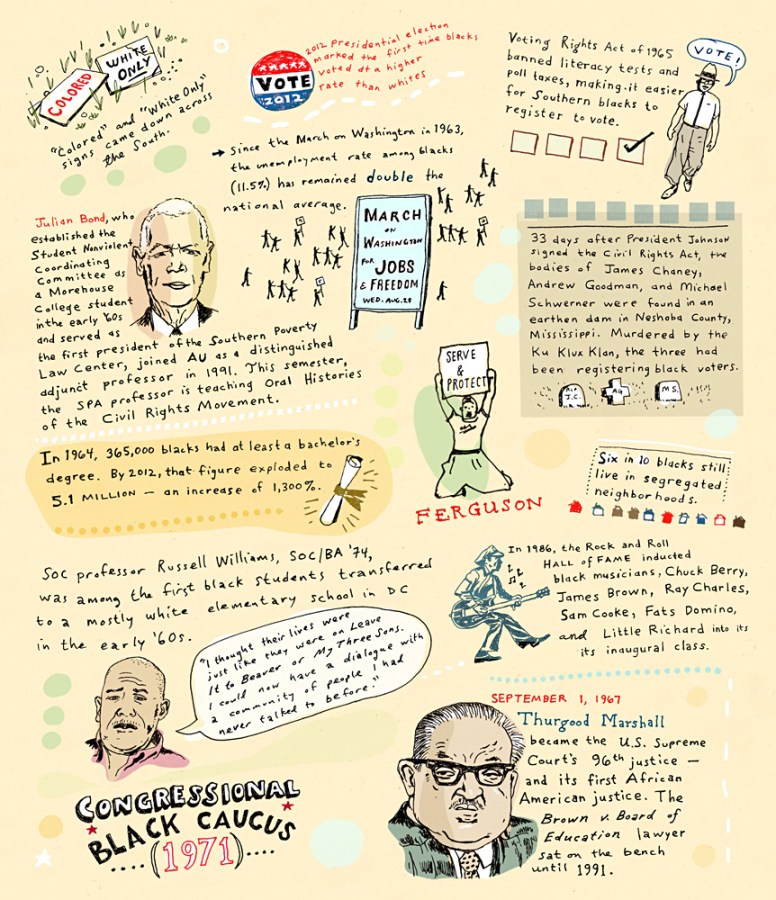 COLORED
WHITE
ONLY
"Colored" and "White Only"
signs came down across
the South.
VOTE
2012
2012 presidential election
marked the first time blacks
voted at a higher
rate than whites
Voting Rights Act of 1965
banned literacy tests and
poll taxes, making it easier
for Southern blacks to
register to vote.
VOTE!
Since the March on Washington in 1963,
the unemployment rate among blacks
(11.5%) has remained double the
national average.
MARCH
ON
WASHINGTON
FOR JOBS
& FREEDOM
WED. AUG. 28
Julian Bond, who
established the
Student Nonviolent
Coordinating
Committee as
a Morehouse
College student
in the early '60s
and served as
the first president of the Southern Poverty
Law Center, joined AU as a distinguished
adjunct professor in 1991. This semester,
the SPA professor is teaching Oral Histories
of the Civil Rights Movement.
33 days after President Johnson
signed the Civil Rights Act, the
bodies of James Chaney,
Andrew Goodman, and Michael
Schwerner were found in an
earthen dam in Neshoba County,
Mississippi. Murdered by the
Ku Klux Klan, the three had
been registering black voters.
J.C.
AG
M.S.
SERVE
&
PROTECT
FERGUSON
In 1964, 365,000 blacks had at least a bachelor's
degree. By 2012, that figure exploded to
5.1 MILLION — an increase of 1,300%.
Six in 10 blacks still
live in segregated
neighborhoods.
SOC professor Russell Williams, SOC/BA '74,
was among the first black students transferred
to a mostly white elementary school in DC
in the early '60s.
"I thought their lives were
just like they were on Leave
It to Beaver or My Three Sons.
I could now have a dialogue with
a community of people I had
never talked to before."
In 1986, the Rock and Roll
HALL of FAME inducted
black musicians, Chuck Berry,
James Brown, Ray Charles,
Sam Cooke, Fats Domino,
and Little Richard into its
its inaugural class.
CONGRESSIONAL
BLACK CAUCUS
....(1971)....
SEPTEMBER 1, 1967
Thurgood Marshall
became the U.S. Supreme
Court's 96th justice —
and its first African
American justice. The
Brown v. Board of
Education lawyer
sat on the bench
until 1991.